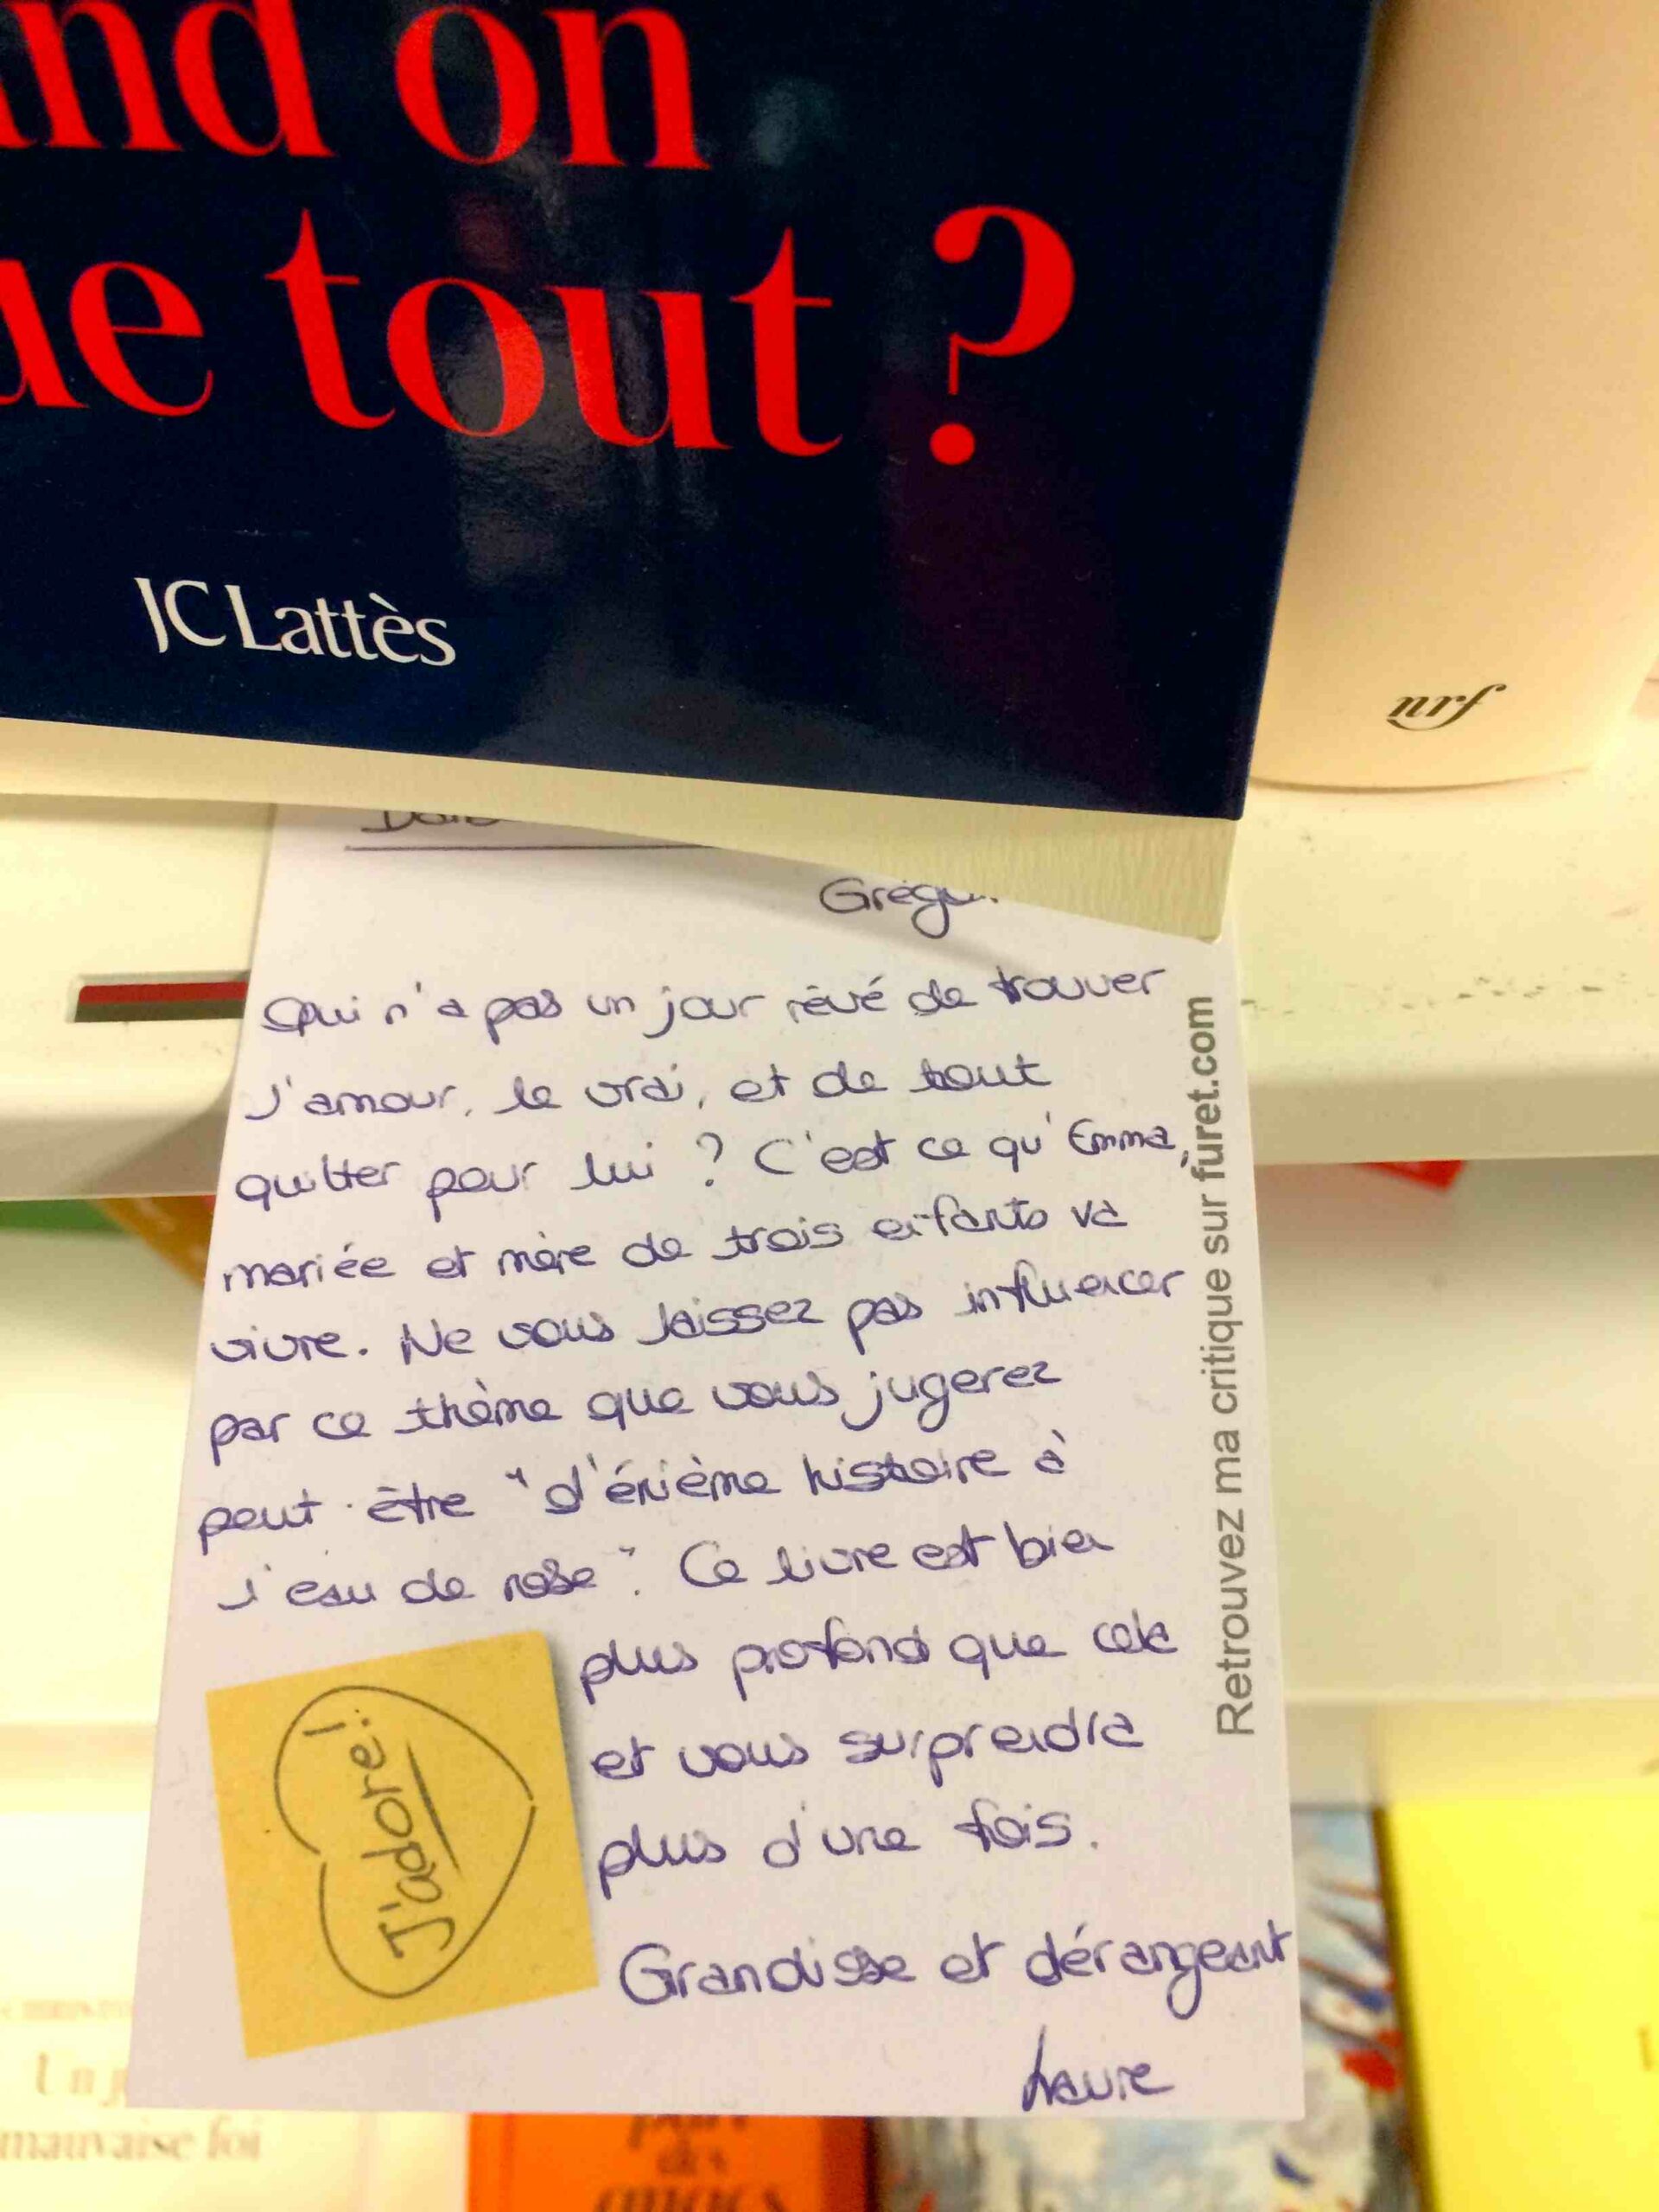 nd on
ue tout ?
JC Lattès
nrf
Qui n'a pas un jour rêvé de trouver
l'amour, le vrai, et de tout
quitter pour lui ? C'est ce qu'Emma,
mariée et mère de trois enfants va
vivre. Ne vous laissez pas influencer
par ce thème que vous jugerez
peut-être "d'énième histoire à
l'eau de rose". Ce livre est bien
plus profond que cela
et vous surprendra
plus d'une fois.
Grandisse et dérangeant
Laure
J'adore !
Retrouvez ma critique sur furet.com
mauvaise foi
des